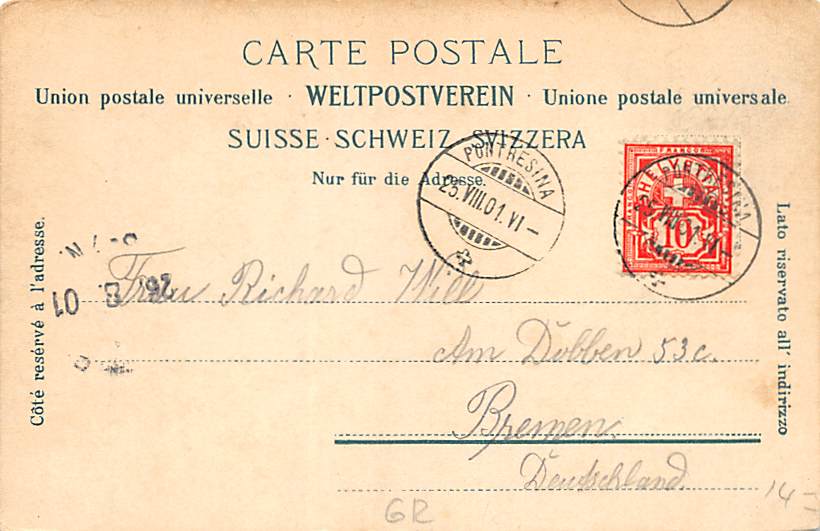 CARTE POSTALE
Union postale universelle · WELTPOSTVEREIN · Unione postale universale.
SUISSE · SCHWEIZ · SVIZZERA
Nur für die Adresse.
PONTRESINA
25.VIII.01.VI–
FRANCO
HELVETIA
10
PONTRESINA
25.VIII.01.VI–
Côté resérvé à l'adresse.
Lato riservato all' indirizzo
26 8 01
Frau Richard Will
Am Dobben 53c.
Bremen.
Deutschland.
GR
14-